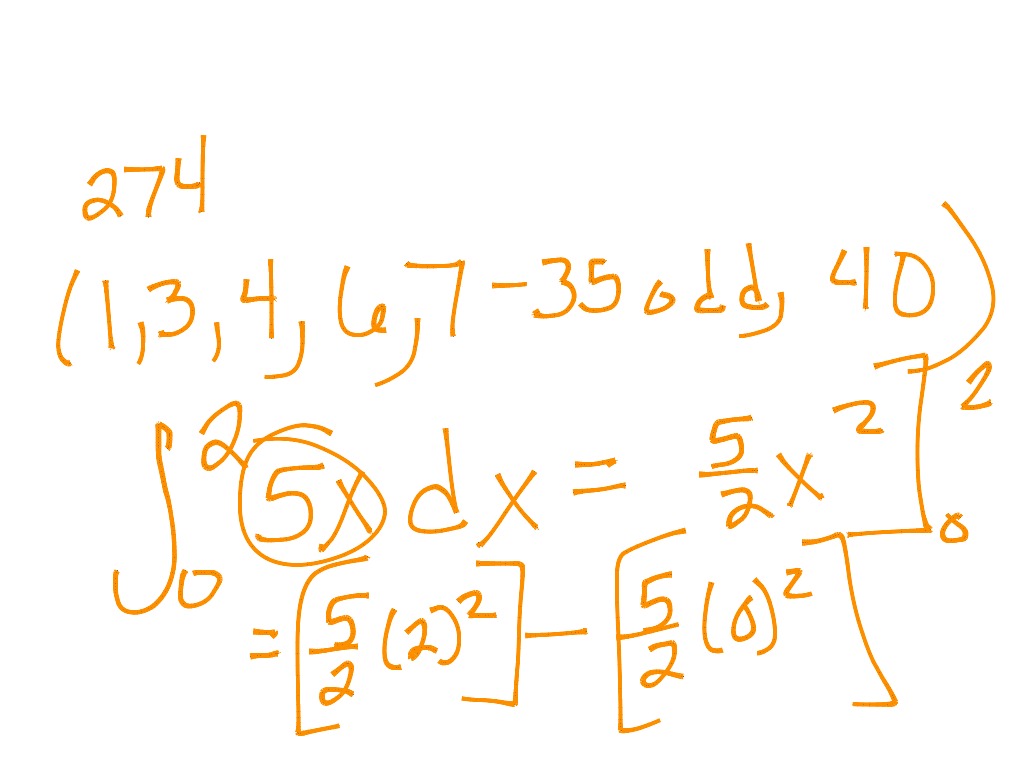 274
(1,3,4,6,7-35 odd, 40)
∫₀² 5x dx = 5/2 x² ]₀²
= [5/2 (2)²] - [5/2 (0)²]